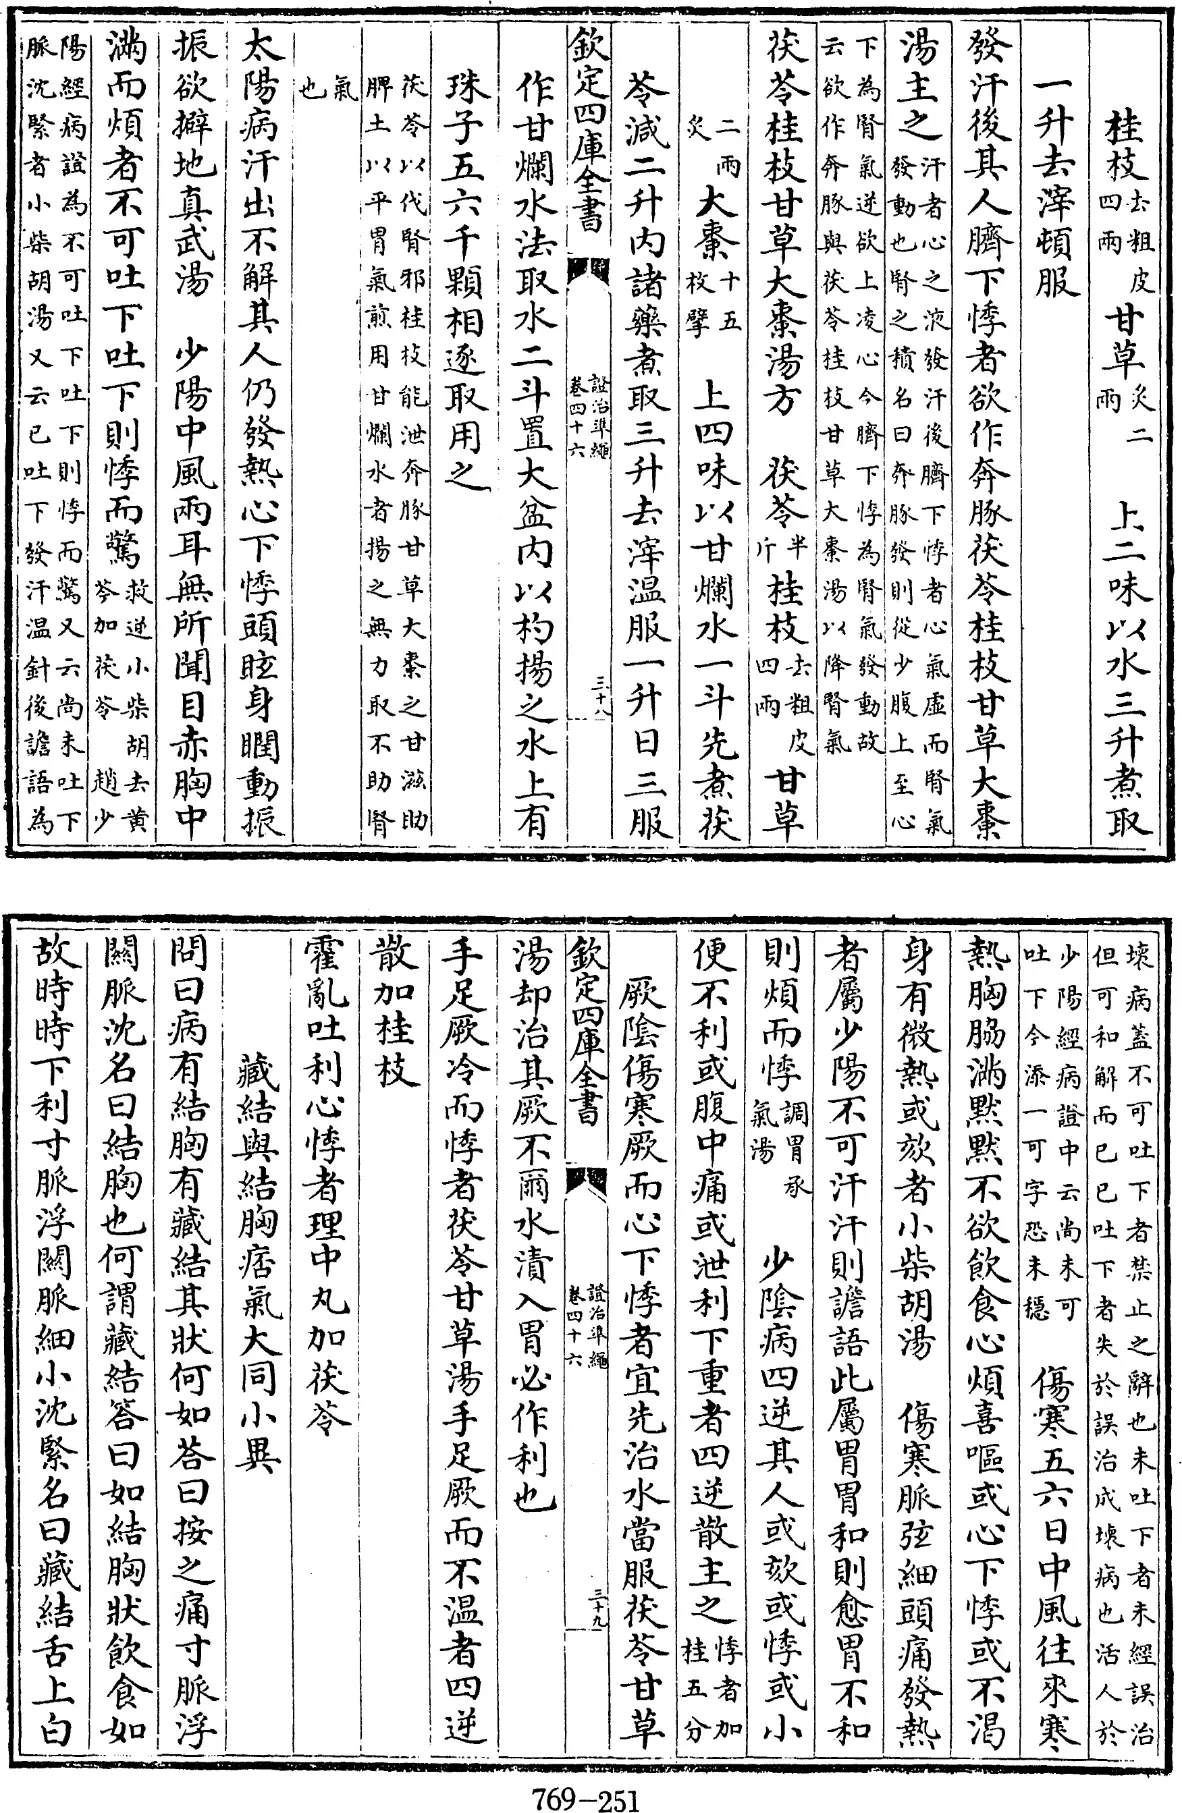 桂枝去粗皮四兩 甘草炙二兩 上二味以水三升煮取
一升去滓頓服
發汗後其人臍下悸者欲作奔豚茯苓桂枝甘草大棗
湯主之汗者心之液發汗後臍下悸者心氣虛而腎氣發動也腎之積名曰奔豚發則從少腹上至心
下為腎氣逆欲上凌心今臍下悸為腎氣發動故云欲作奔豚與茯苓桂枝甘草大棗湯以降腎氣
茯苓桂枝甘草大棗湯方 茯苓半斤桂枝去粗皮四兩甘草
二兩炙大棗十五枚擘 上四味以甘爛水一斗先煮茯
苓減二升內諸藥煮取三升去滓温服一升日三服
欽定四庫全書 證治準繩卷四十六 三十八
作甘爛水法取水二斗置大盆內以杓揚之水上有
珠子五六千顆相逐取用之
茯苓以伐腎邪桂枝能泄奔豚甘草大棗之甘滋助脾土以平胃氣煎用甘爛水者揚之無力取不助腎
氣也
太陽病汗出不解其人仍發熱心下悸頭眩身瞤動振
振欲擗地真武湯 少陽中風兩耳無所聞目赤胸中
滿而煩者不可吐下吐下則悸而驚救逆小柴胡去黄芩加茯苓 趙少
陽經病證為不可吐下吐下則悸而驚又云尚未吐下脈沈緊者小柴胡湯又云已吐下發汗温針後譫語為
壞病蓋不可吐下者禁止之辭也未吐下者未經誤治但可和解而已已吐下者失於誤治成壞病也活人於
少陽經病證中云尚未可吐下今添一可字恐未穩 傷寒五六日中風往來寒
熱胸脇滿默默不欲飲食心煩喜嘔或心下悸或不渴
身有微熱或欬者小柴胡湯 傷寒脈弦細頭痛發熱
者屬少陽不可汗汗則譫語此屬胃胃和則愈胃不和
則煩而悸調胃承氣湯 少陰病四逆其人或欬或悸或小
便不利或腹中痛或泄利下重者四逆散主之悸者加桂五分
厥陰傷寒厥而心下悸者宜先治水當服茯苓甘草
欽定四庫全書 證治準繩卷四十六 三十九
湯却治其厥不爾水漬入胃必作利也
手足厥冷而悸者茯苓甘草湯手足厥而不温者四逆
散加桂枝
霍亂吐利心悸者理中丸加茯苓
藏結與結胸痞氣大同小異
問曰病有結胸有藏結其狀何如答曰按之痛寸脈浮
關脈沈名曰結胸也何謂藏結答曰如結胸狀飲食如
故時時下利寸脈浮關脈細小沈緊名曰藏結舌上白
769-251